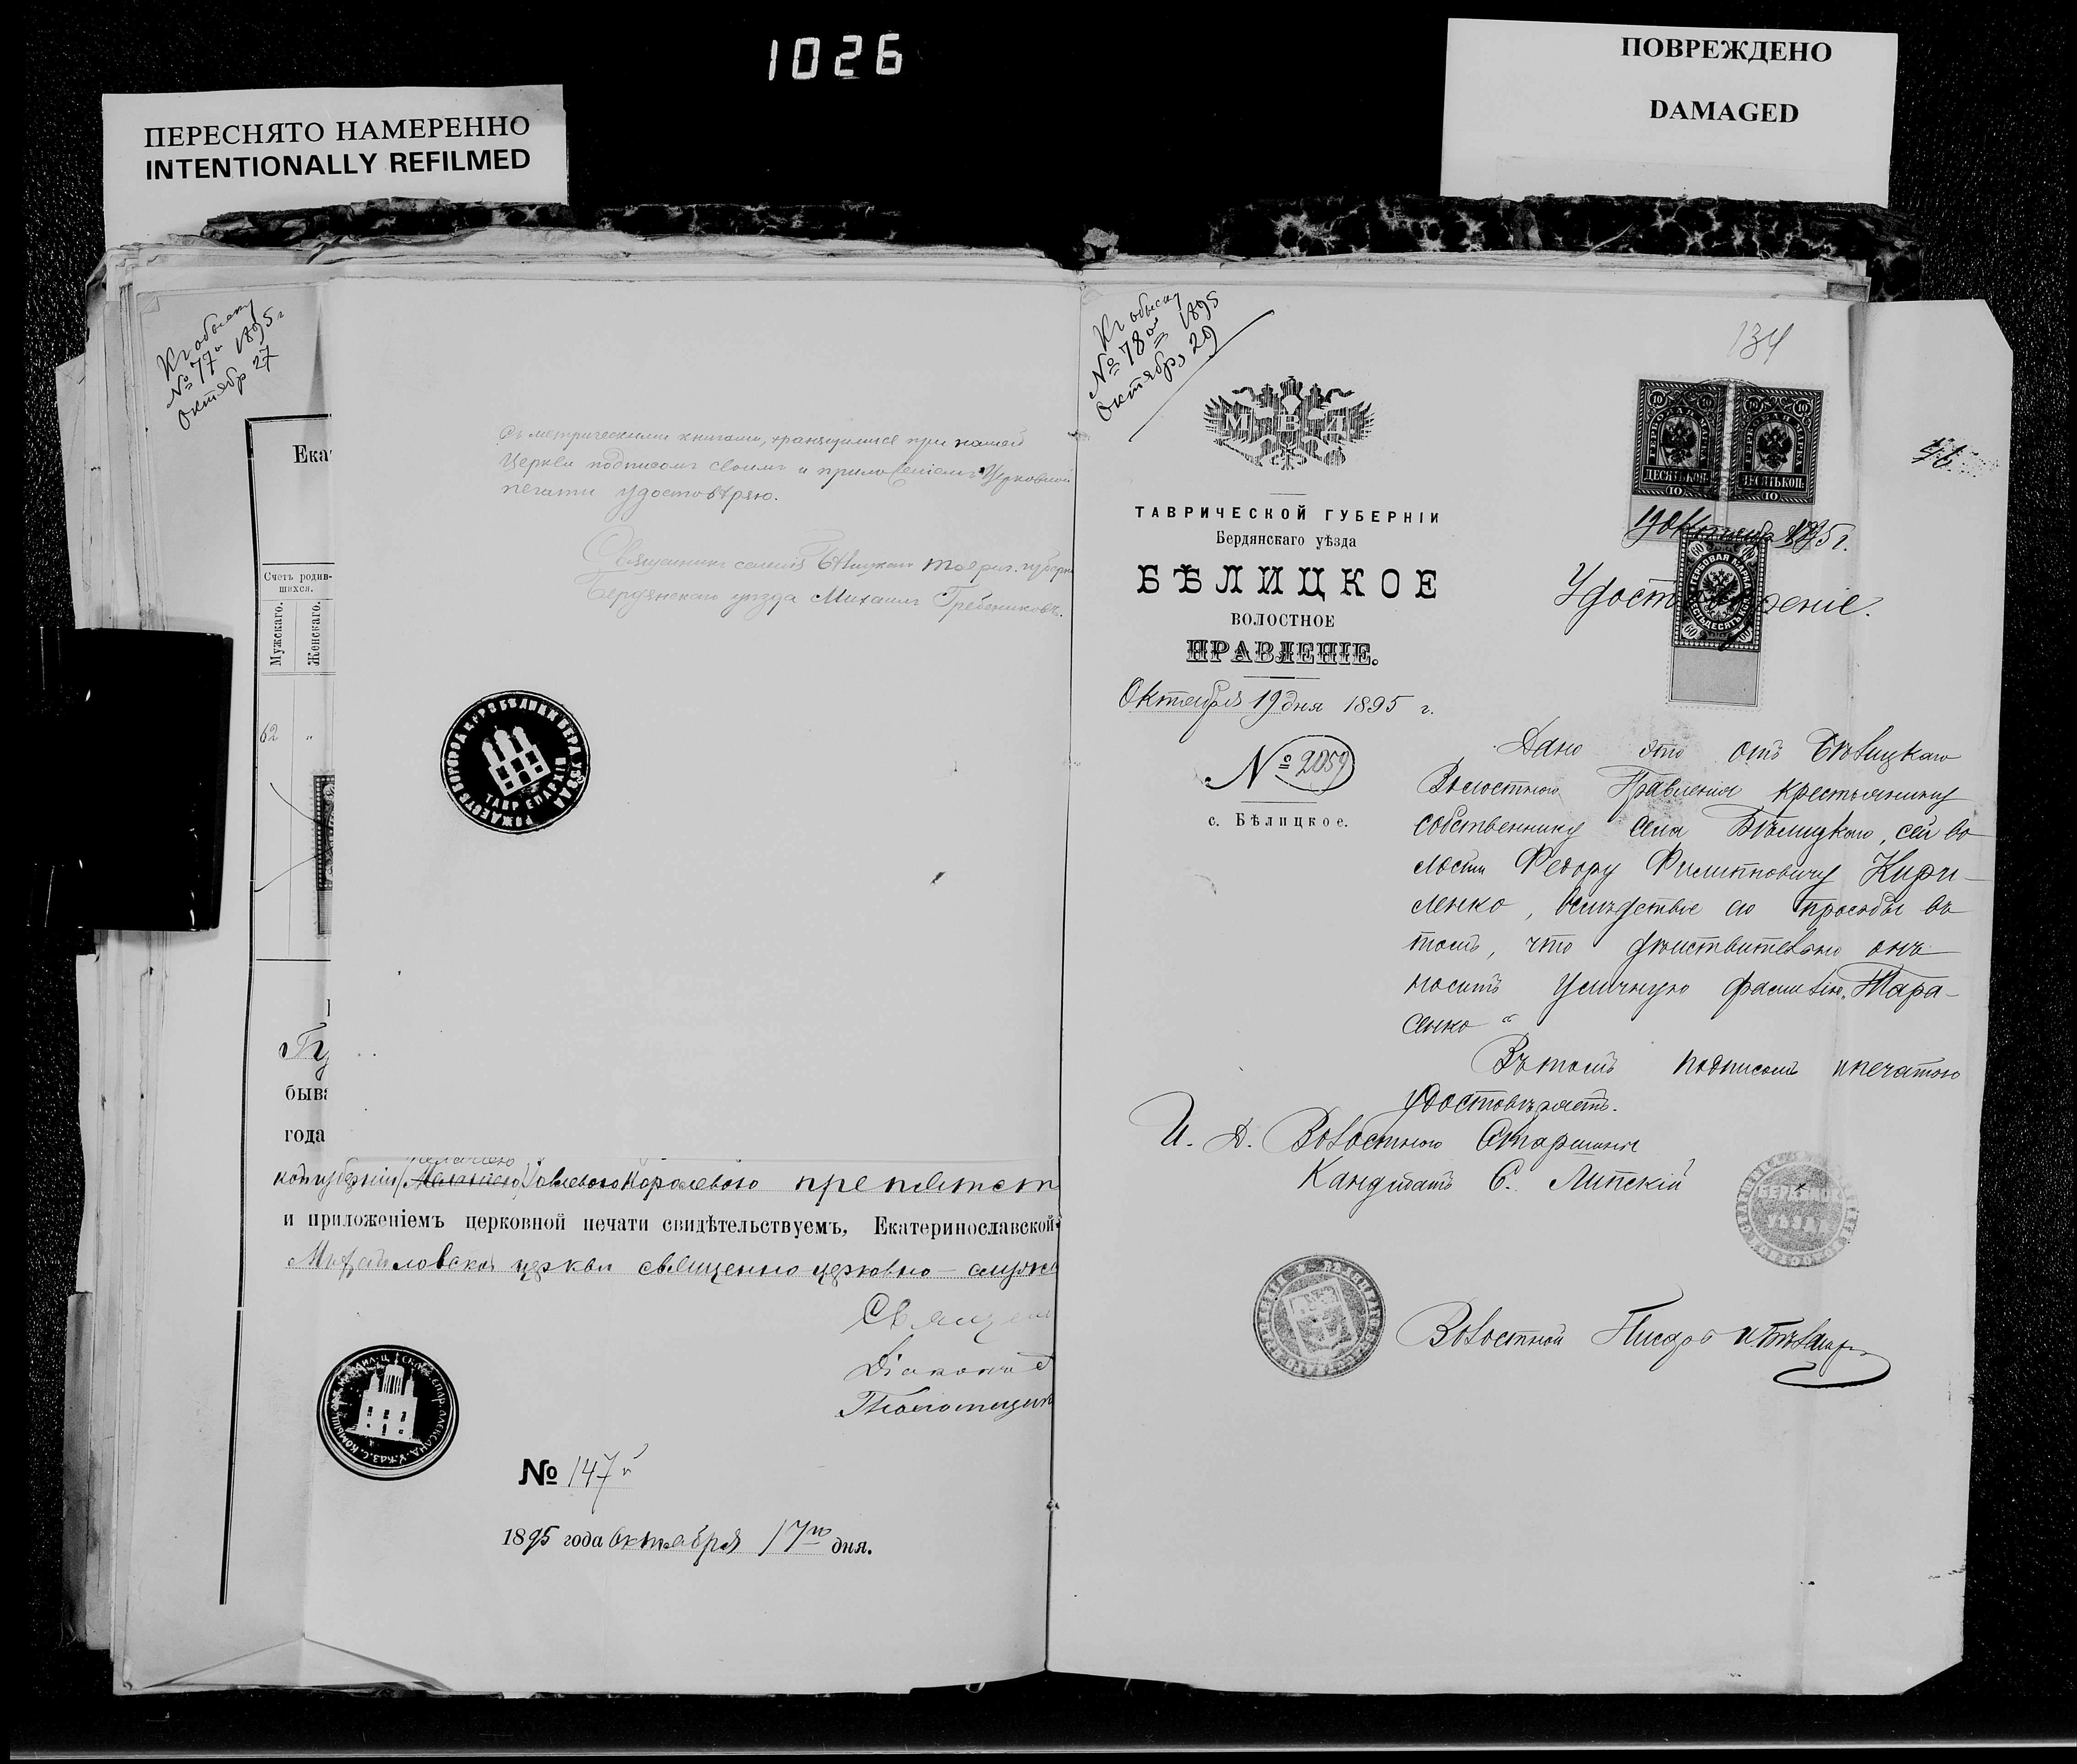 1026
ПЕРЕСНЯТО НАМЕРЕННО
INTENTIONALLY REFILMED
ПОВРЕЖДЕНО
DAMAGED
Къ обыску
№ 77й 1895 г
Октябр 27
Ека
Счетъ родив-
шихся.
Мужскаго.
Женскаго.
62 "
Гу
быв
года
Съ метрическими книгами, хранящимися при нашей
Церкви подписомъ своимъ и приложеніемъ Церковной
печати удостовѣряю.
Священникъ селенія Бѣлицкаго Таврич. губерн
Бердянскаго уѣзда Михаилъ Гребенниковъ.
РОЖДЕСТВ БОГОРОД ЦЕР З БѢЛИЦКИ БЕРД УѢЗДА
ТАВР ЕПАРХІИ
кой губерніи Павлевого Королевого препятст
и приложеніемъ церковной печати свидѣтельствуемъ, Екатеринославской
Михайловской церкви священно церковно-служи
Священ
Діаконъ
Псаломщик
№ 147й
1895 года Октября 17го дня.
Къ обыску
№ 78й 1895
Октября 29
134
М В Д
ТАВРИЧЕСКОЙ ГУБЕРНІИ
Бердянскаго уѣзда
БѢЛИЦКОЕ
ВОЛОСТНОЕ
ПРАВЛЕНІЕ.
Октября 19 дня 1895 г.
№ 2059
с. Бѣлицкое.
10 10
ДЕСЯТЬ КОП.
10
10 10
ДЕСЯТЬ КОП.
10
19 Октября 1895 г.
60 ГЕРБОВАЯ МАРКА
ШЕСТЬДЕСЯТЪ КОП.
60
Удостовѣреніе.
Дано это отъ Бѣлицкаго
Волостного Правленія крестьянину
собственнику села Бѣлицкаго, сей во
лости Федору Филипповичу Кири-
ленко, вслѣдствіе его просьбы въ
томъ, что дѣйствительно онъ
носитъ уличную фамилію „Тара-
сенко“
Въ томъ подписомъ и печатью
удостовѣряетъ.
И. Д. Волостного Старшины
Кандидатъ С. Липскій
БЕРДЯНСК
УѢЗДА
Волостной Писарь